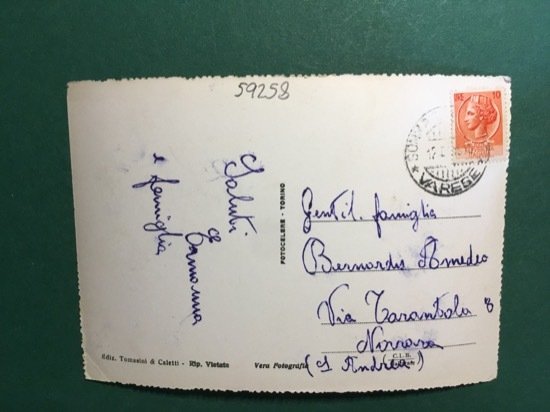 59258
10
VARESE
Saluti
Ermanna
e famiglia
FOTOCELERE - TORINO
Gentil. famiglia
Bernardis Amedeo
Via Tarantola 8
Novara
(S Andrea)
Ediz. Tomasini & Caletti - Rip. Vietata
Vera Fotografia